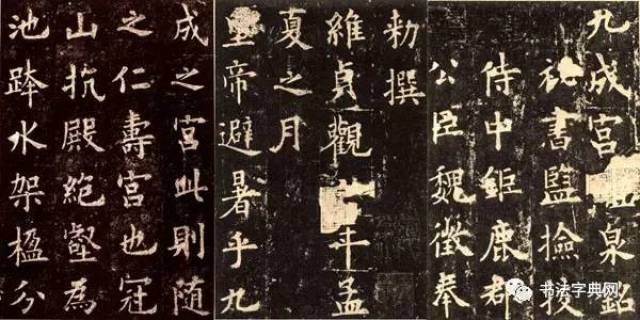 九成宮泉銘
秘書監撿挍
侍中鉅鹿郡
公臣魏徵奉
勑撰
維貞觀年孟
夏之月
皇帝避暑乎九
成之宮此則随
之仁壽宮也冠
山抗殿絕壑為
池跨水架楹分
书法字典网